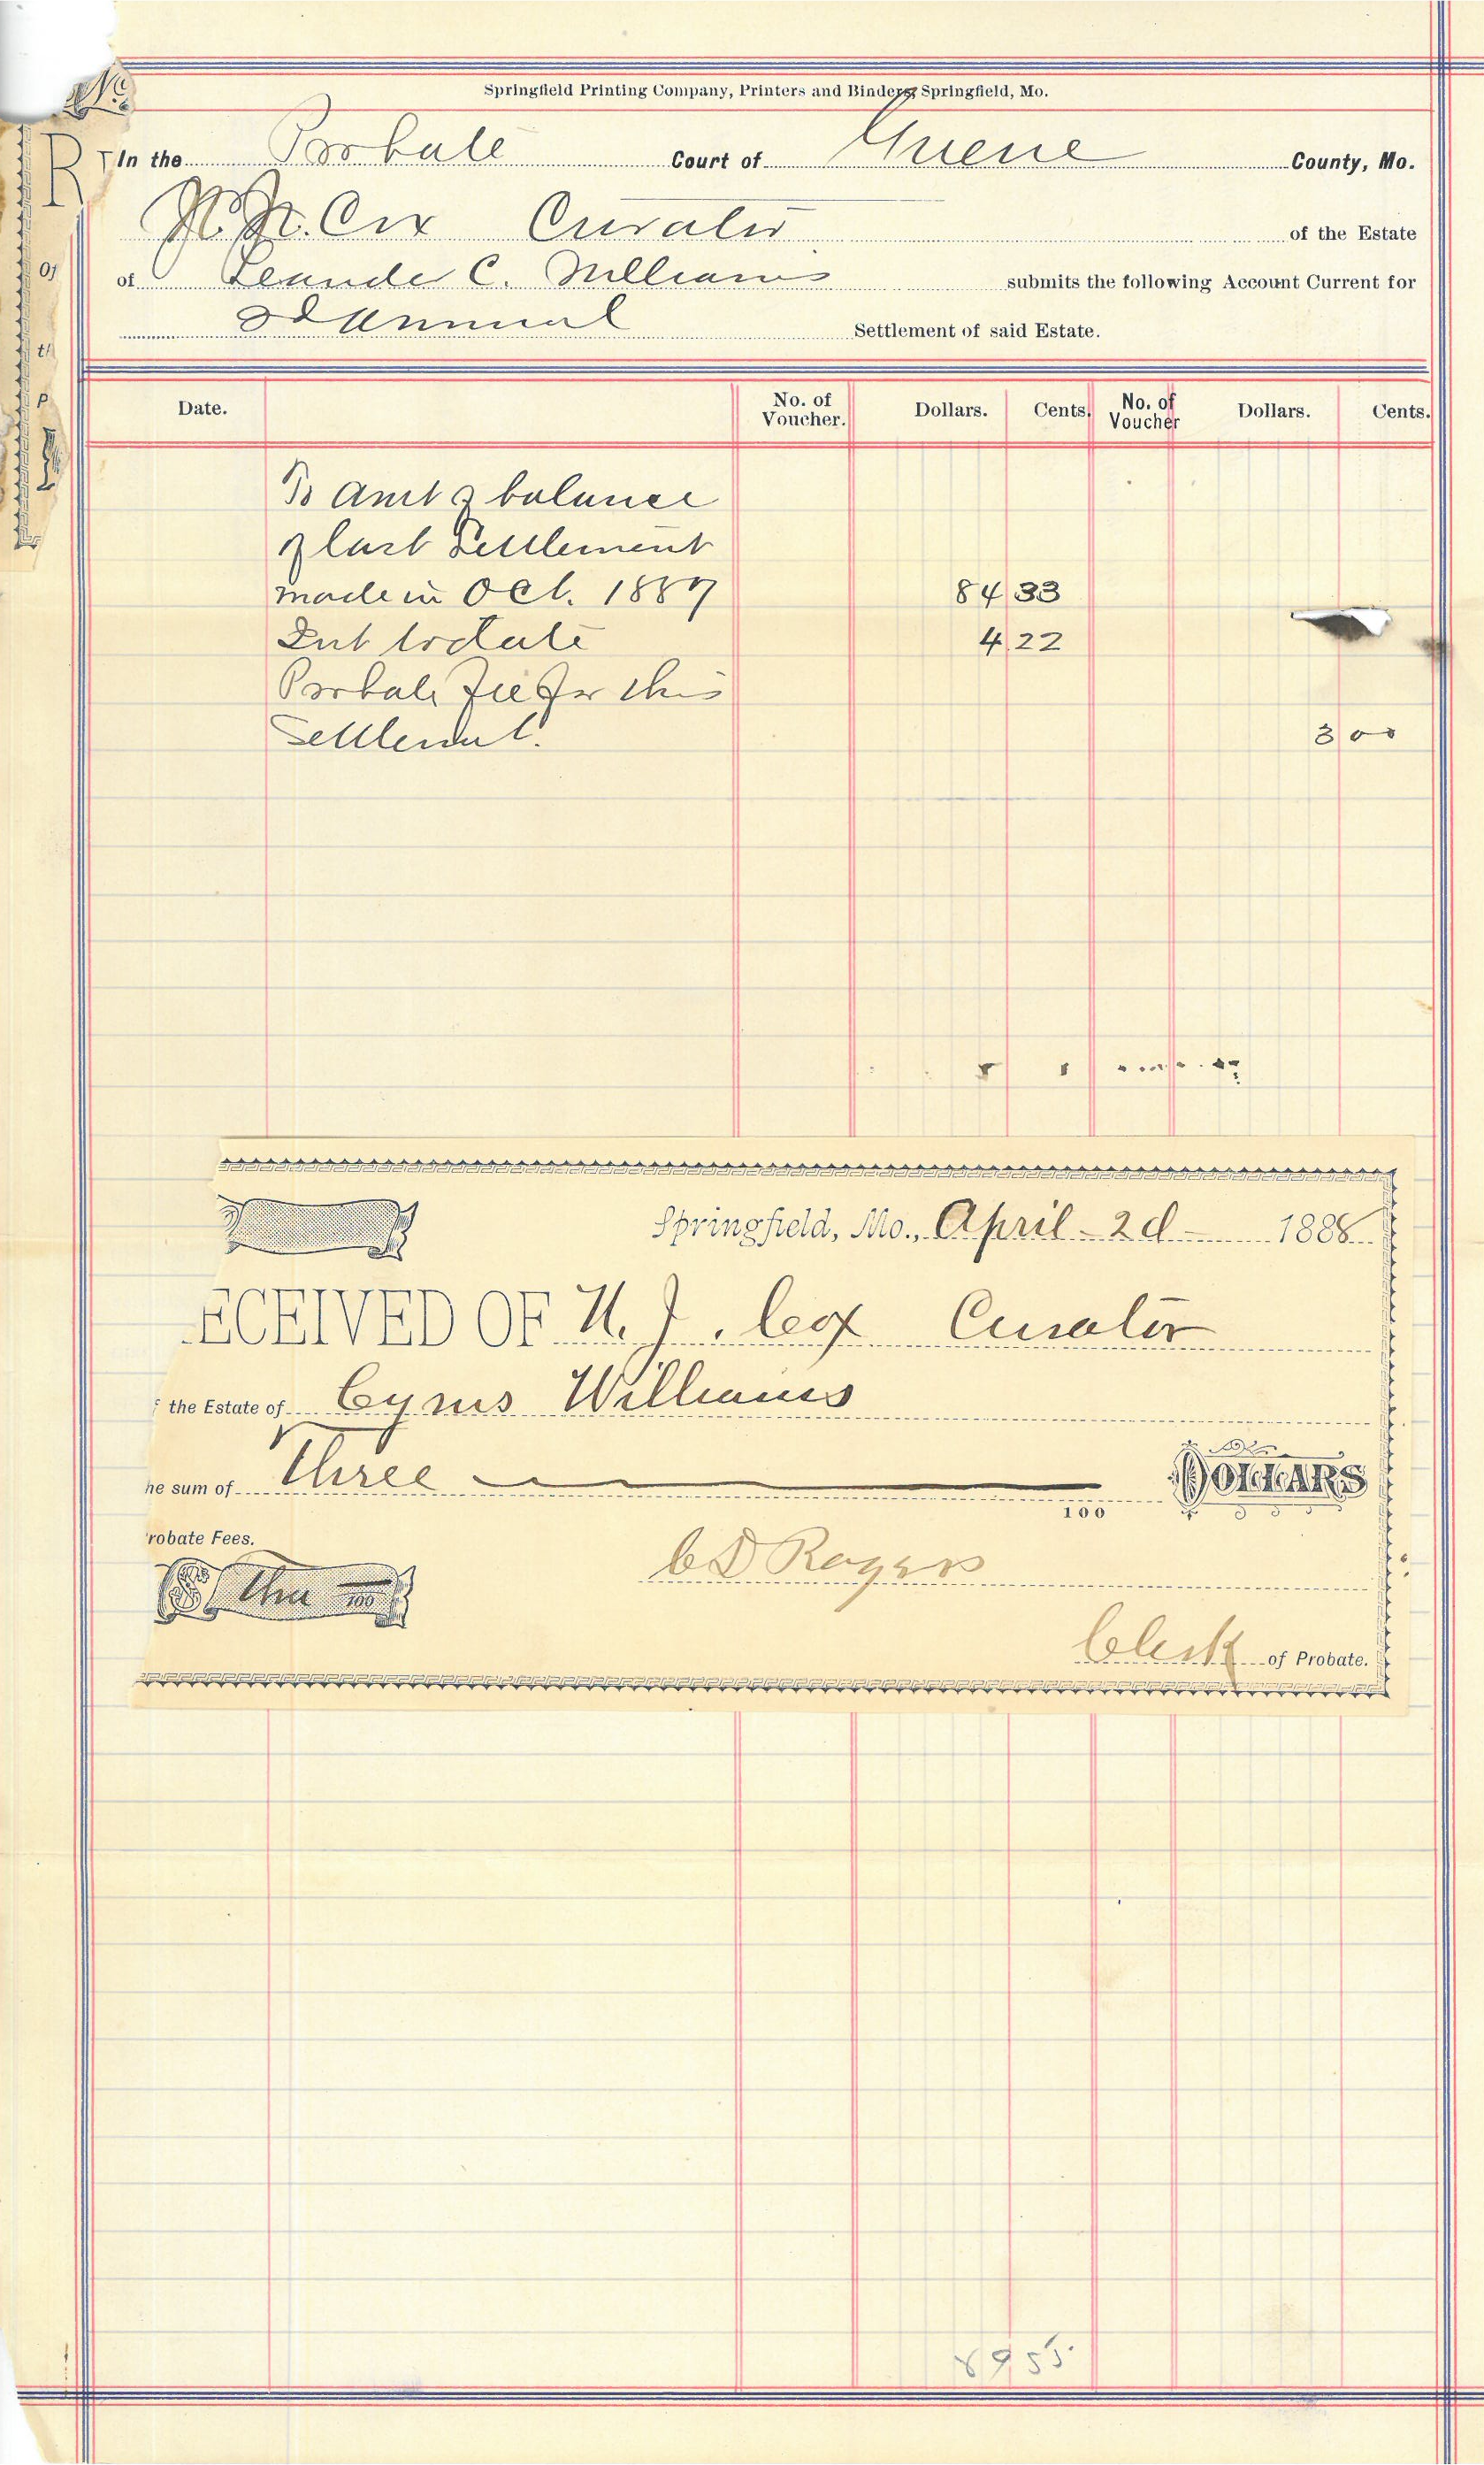 Springfield Printing Company, Printers and Binders, Springfield, Mo.
In the Probate Court of Greene County, Mo.
Cox Curator of the Estate
of Leander C. Williams submits the following Account Current for
2d Annual Settlement of said Estate.
Date. No. of Voucher. Dollars. Cents. No. of Voucher Dollars. Cents.
To amt of balance
of last Settlement
made in Oct. 1887 84 33
Int to date 4 22
Probate fee for this
Settlement. 3 00
Springfield, Mo., April - 2d - 1888
ECEIVED OF N. J. Cox Curator
the Estate of Cyrus Williams
he sum of Three
100 DOLLARS
robate Fees.
$ Three 100
C D Rogers
Clerk of Probate.
R
Of
th
P